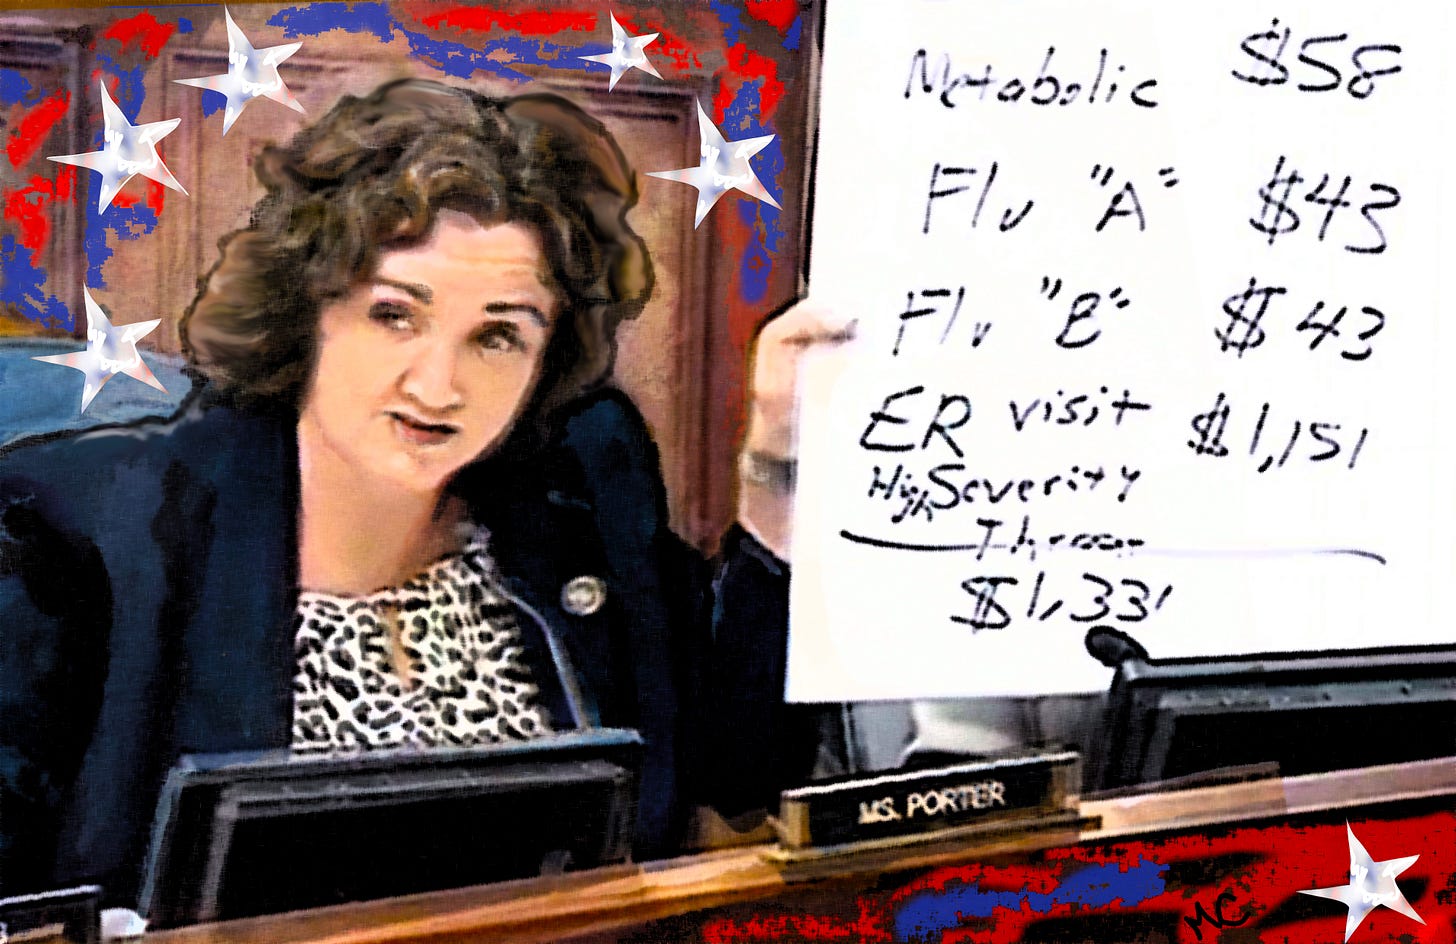 Metabolic $58
Flu "A" $43
Flu "B" $43
ER visit $1,151
High Severity
$1,331
MS. PORTER
MC